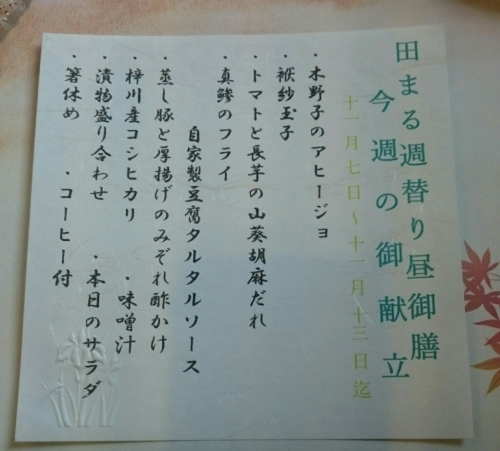 田まる週替り昼御膳
今週の御献立
十一月七日～十一月十三日迄
・木野子のアヒージョ
・袱紗玉子
・トマトと長芋の山葵胡麻だれ
・真鯵のフライ
自家製豆腐タルタルソース
・蒸し豚と厚揚げのみぞれ酢かけ
・梓川産コシヒカリ ・味噌汁
・漬物盛り合わせ ・本日のサラダ
・箸休め ・コーヒー付